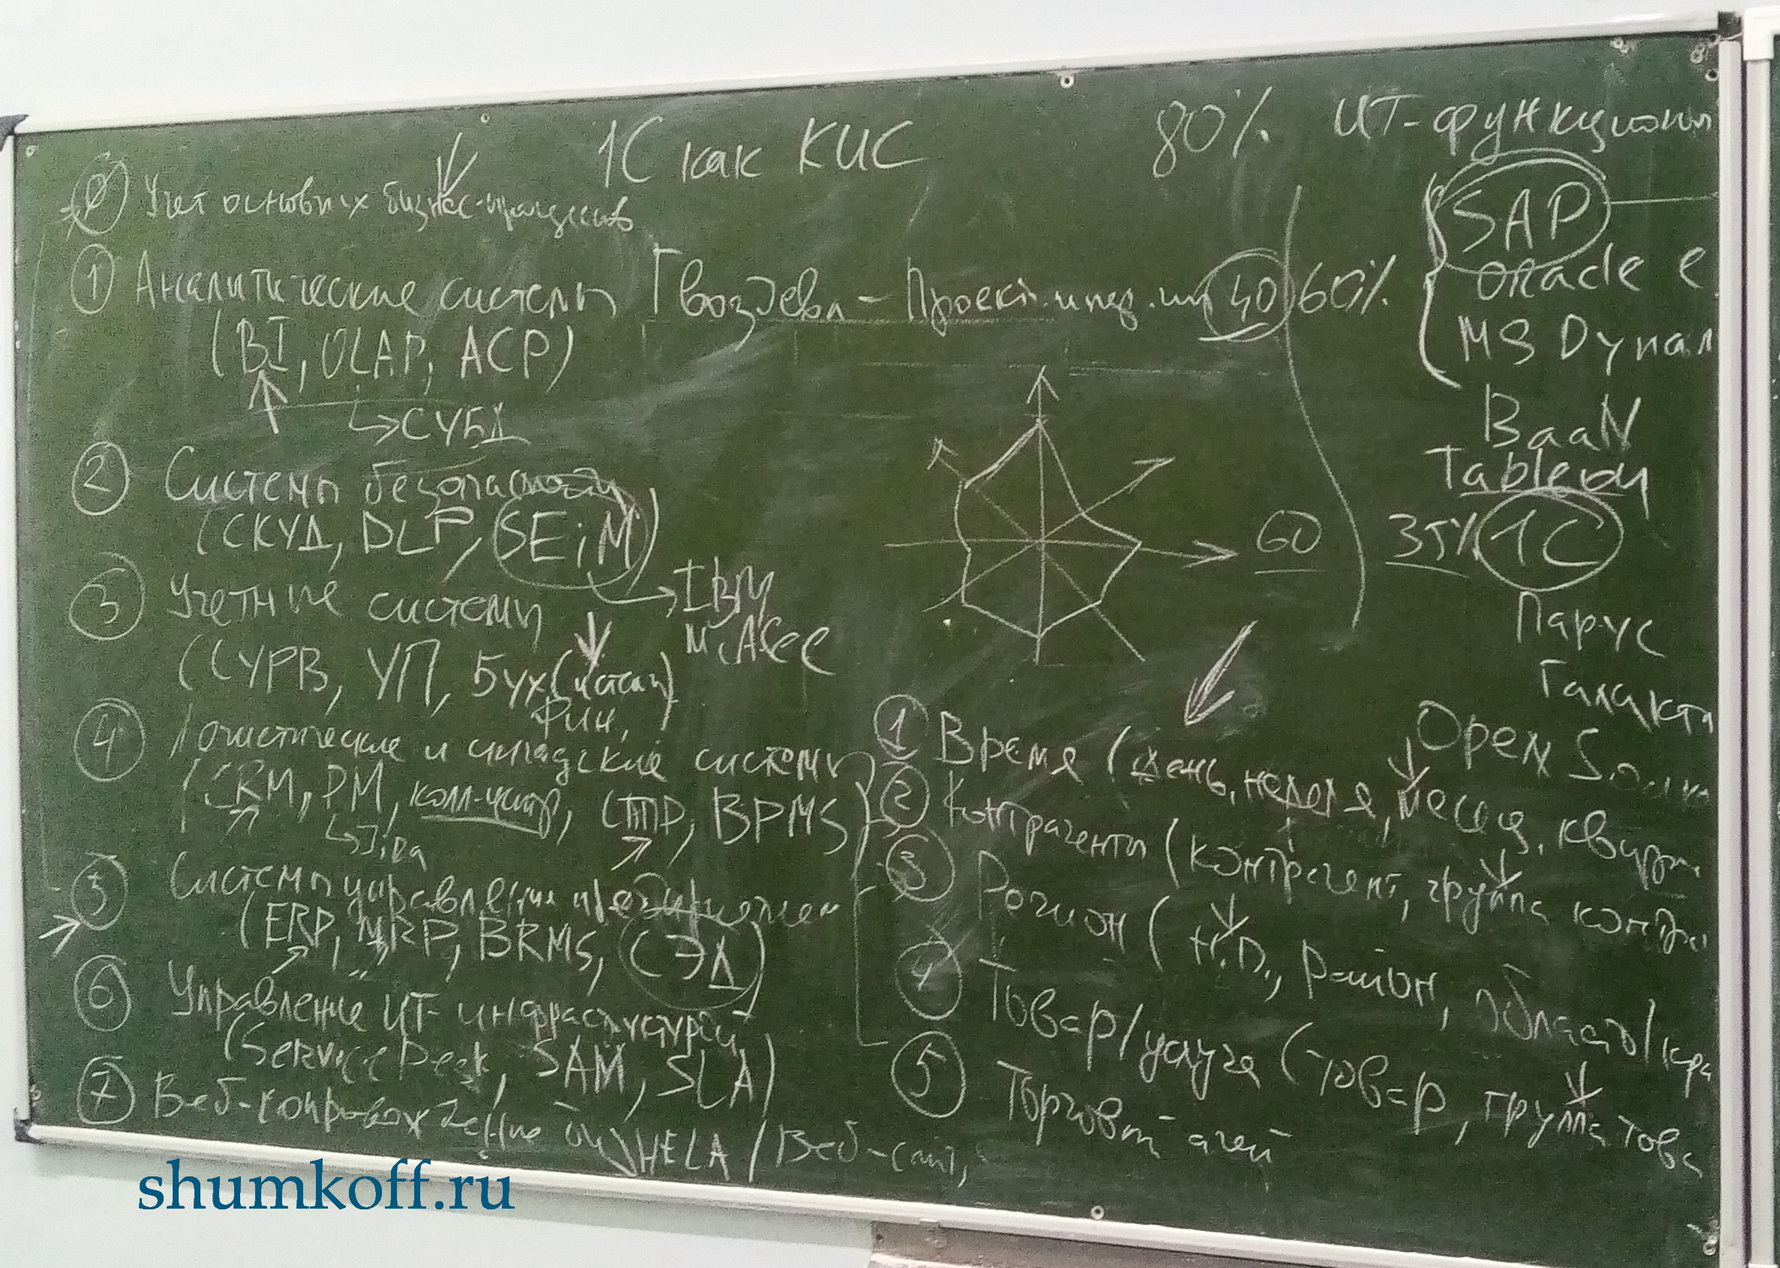 1С как КИС
80% ИТ-функционал
0 Учет основных бизнес-процессов
1 Аналитические системы
(BI, OLAP, АСР)
СУБД
2 Системы безопасности
(СКУД, DLP, SEiM)
IBM
McAfee
3 Учетные системы
(СУРВ, УП, Бух
Фин,
4 Логистические и складские системы
(CRM, PM, СТТР, BPMS)
Jira
5 Системы управления предприятием
(ERP, MRP, BRMS, СЭД)
6 Управление ИТ-инфраструктурой
(Service Desk, SAM, SLA)
7 Веб-сопровождение
HELA / Веб-сайт,
Гвоздева - Проект. 40 60%
60
SAP
Oracle e
MS Dynam
BaaN
Tableau
35% 1С
Парус
Галакти
Open
1 Время (день, неделя, месяц, кварта
2 Контрагенты (контрагент, группа контра
3 Регион (Н.П., район, область/кра
4 Товар/услуга (товар, группа това
5 Торговый агент
shumkoff.ru